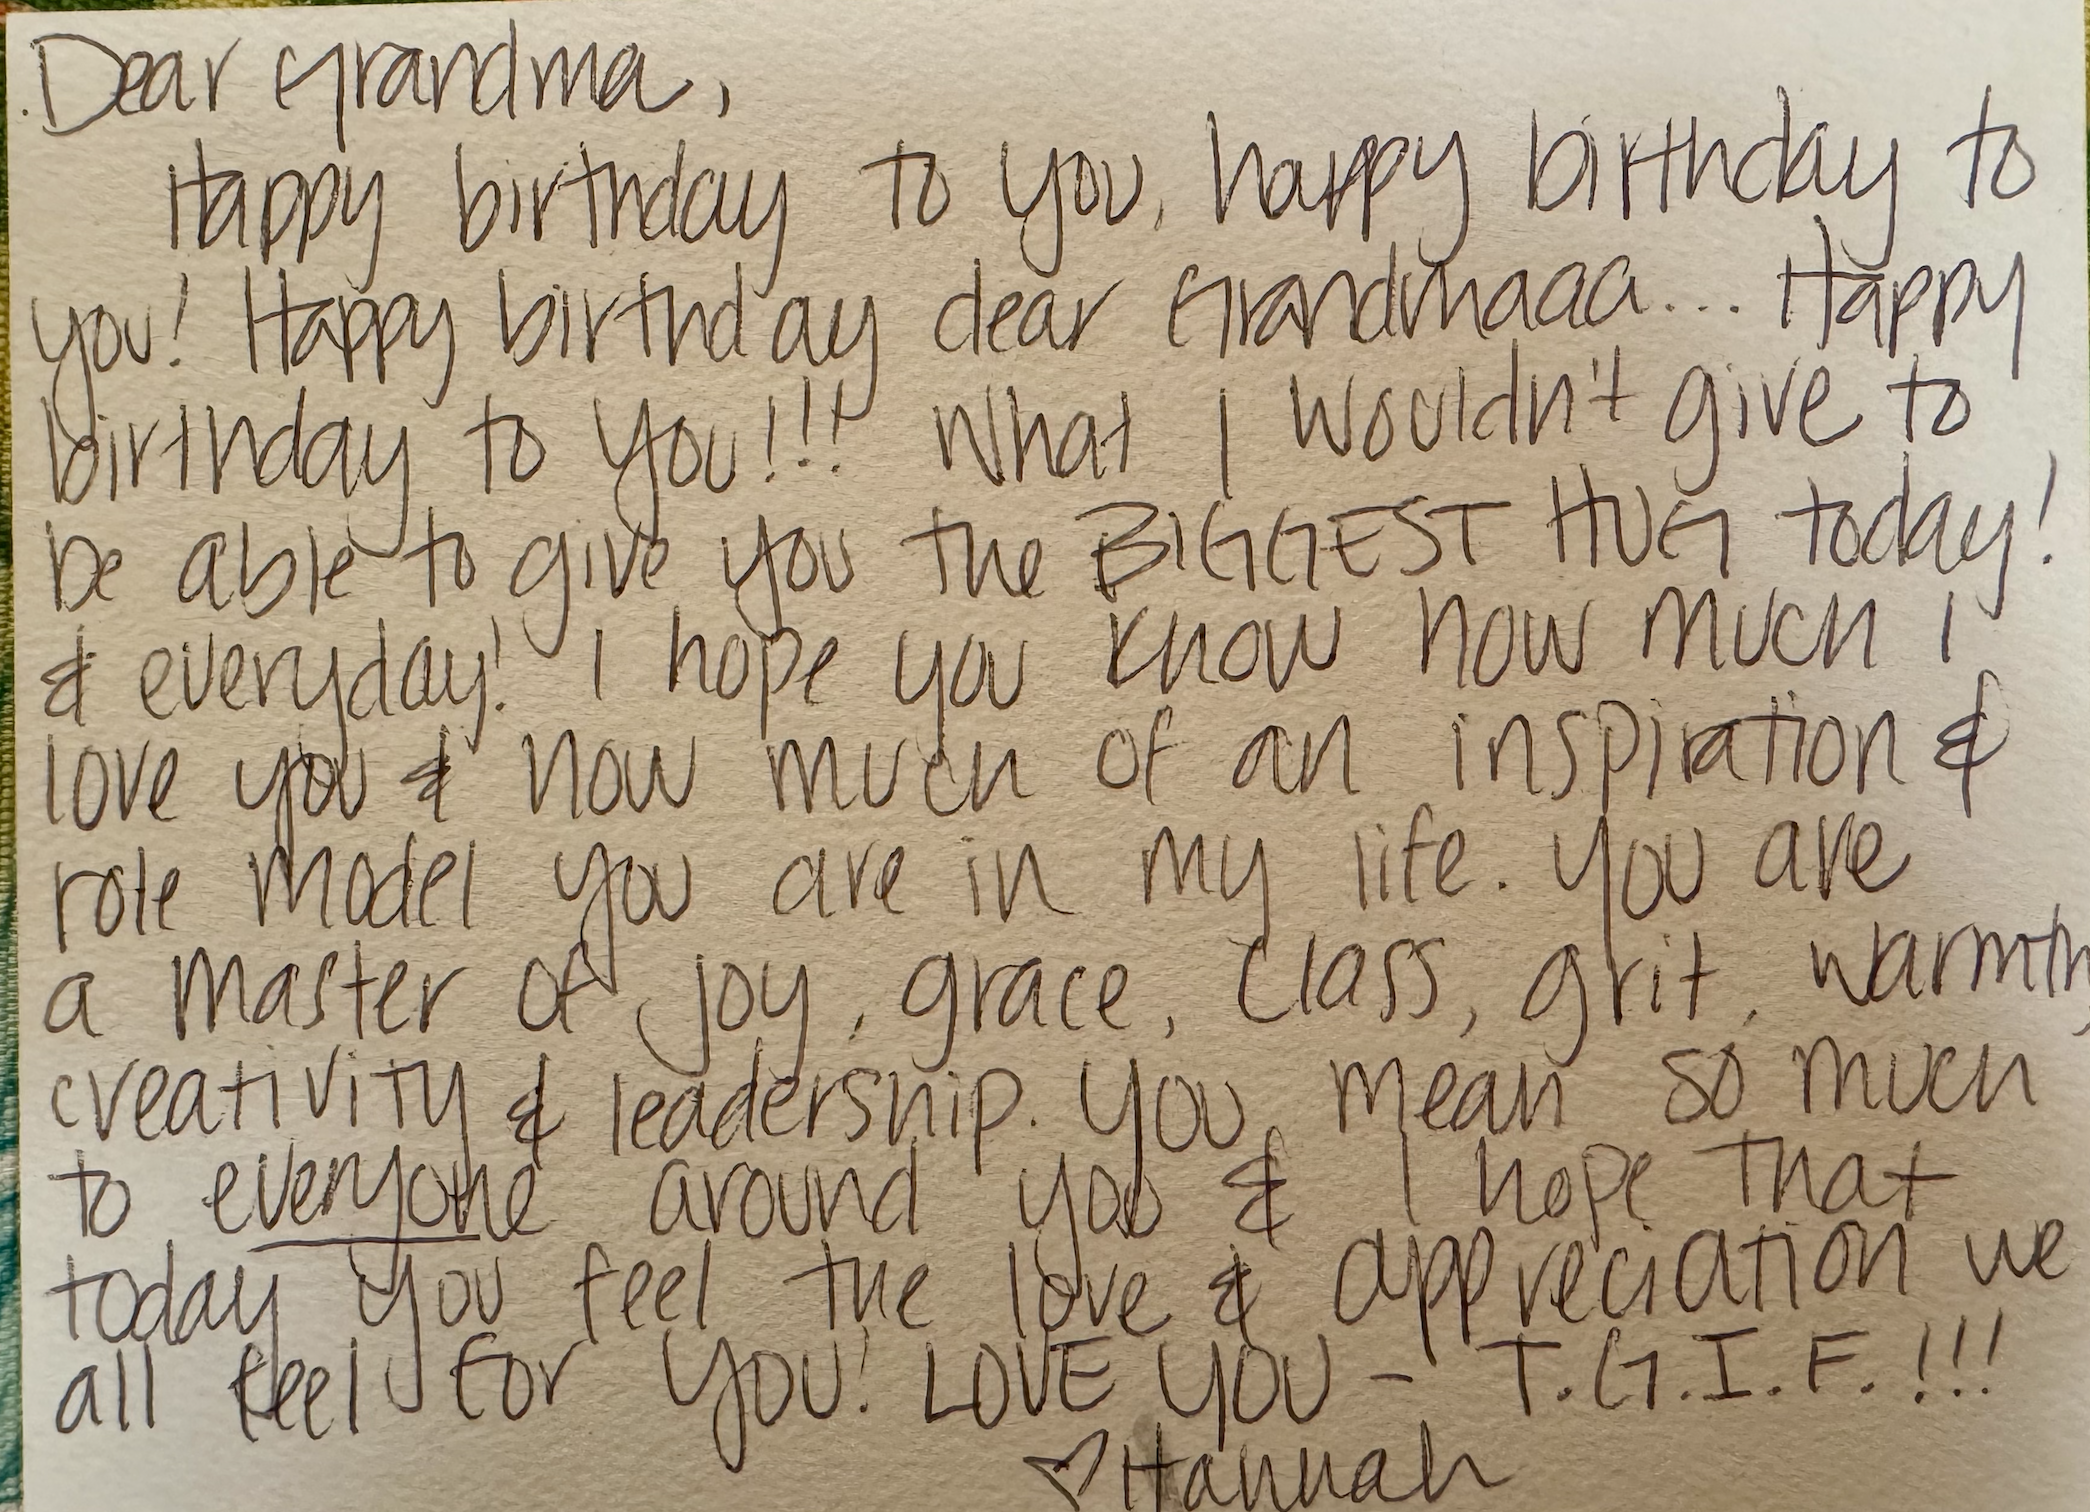 Dear Grandma,
Happy birthday to you, happy birthday to
you! Happy birthday dear Grandmaaa... Happy
birthday to you!!! What I wouldn't give to
be able to give you the BIGGEST HUG today!
& everyday! I hope you know how much I
love you & how much of an inspiration &
role model you are in my life. You are
a master of joy, grace, class, grit, warmth,
creativity & leadership. You mean so much
to everyone around you & I hope that
today you feel the love & appreciation we
all feel for you! LOVE YOU - T.G.I.F.!!!
♡Hannah